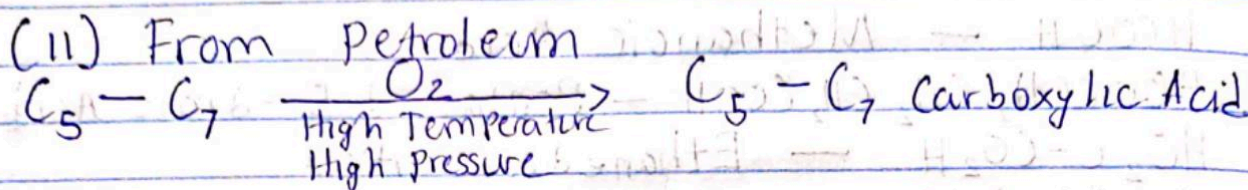 (11) From Petroleum
C5 - C7 O2 High Temperature High Pressure → C5 - C7 Carboxylic Acid